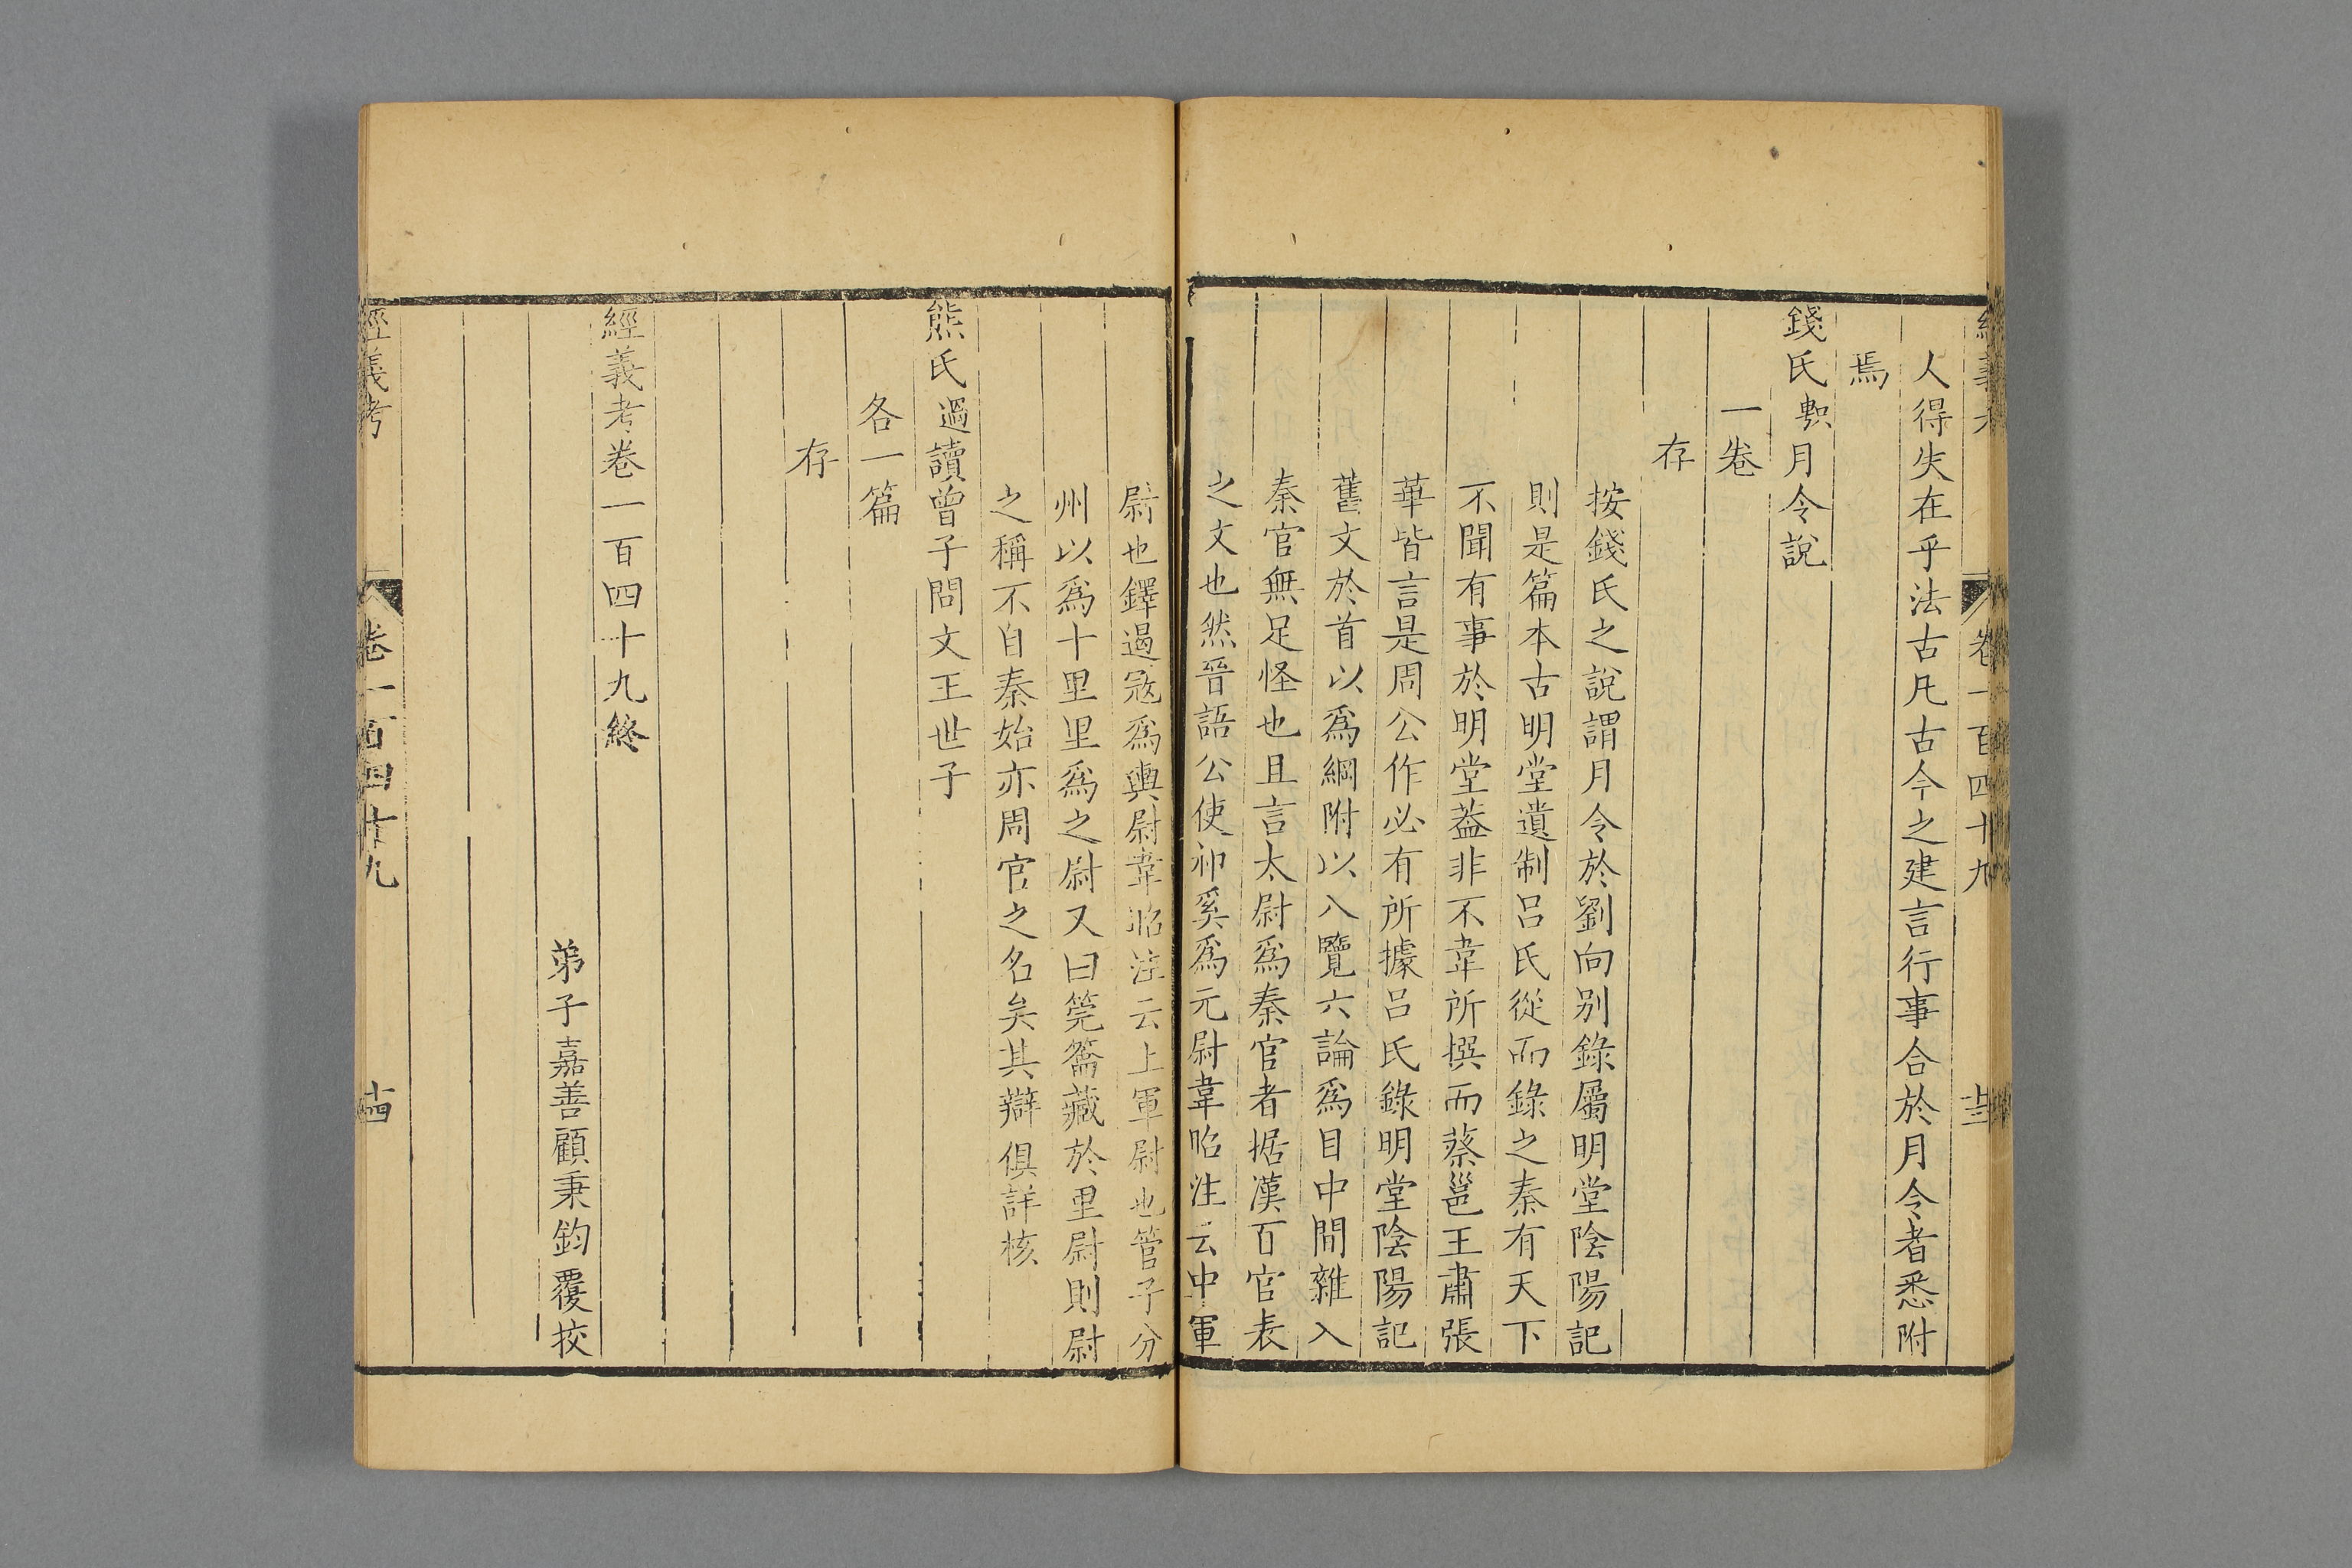 卷一百四十九
人得失在乎法古凡古今之建言行事合於月令者悉附
焉
錢氏𢾾月令說
一卷
存
按錢氏之說謂月令於劉向别錄屬明堂陰陽記
則是篇本古明堂遺制吕氏從而錄之秦有天下
不聞有事於明堂葢非不韋所撰而蔡邕王肅張
華皆言是周公作必有所據吕氏錄明堂陰陽記
舊文於首以爲綱附以八覽六論爲目中間雜入
秦官無足怪也且言太尉爲秦官者据漢百官表
之文也然晉語公使祁奚爲元尉韋昭注云中軍
尉也鐸遏寇爲輿尉韋昭注云上軍尉也管子分
州以爲十里里爲之尉又曰筦籥藏於里尉則尉
之稱不自秦始亦周官之名矣其辯俱詳核
熊氏過讀曾子問文王世子
各一篇
存
經義考卷一百四十九終
弟子嘉善顧秉鈞覆挍
經義考
卷一百四十九
十四